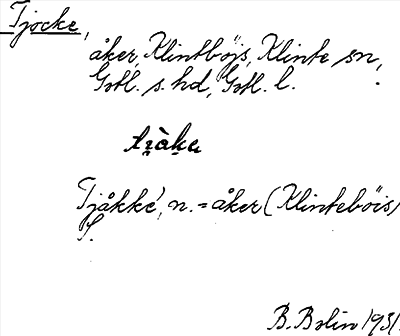 Tjocke,
åker, Klintböjs, Klinte sn,
Gotl. s. hd, Gotl. l.
Tjåkké, n. = åker (Klinteböis)
S.
B. Bolin 1931.